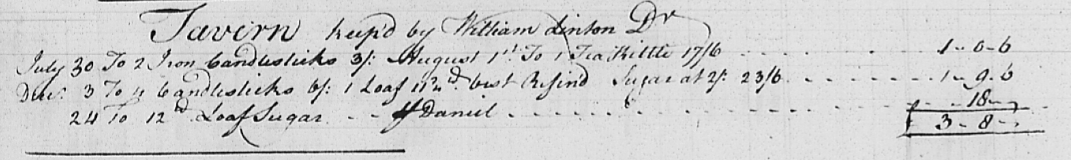 Tavern kep'd by William Linton Dr
July 30 To 2 Iron Candlesticks 3/. August 1st To 1 Tea Kittle 17/6 1 - 0 - 6
Decr 3 To 4 Candlesticks 6/. 1 Loaf 11¾ d. best Refind Sugar at 2/. 23/6 1 - 9 - 6
24 To 12 d Loaf Sugar Daniel - 18 -
3 - 8 -